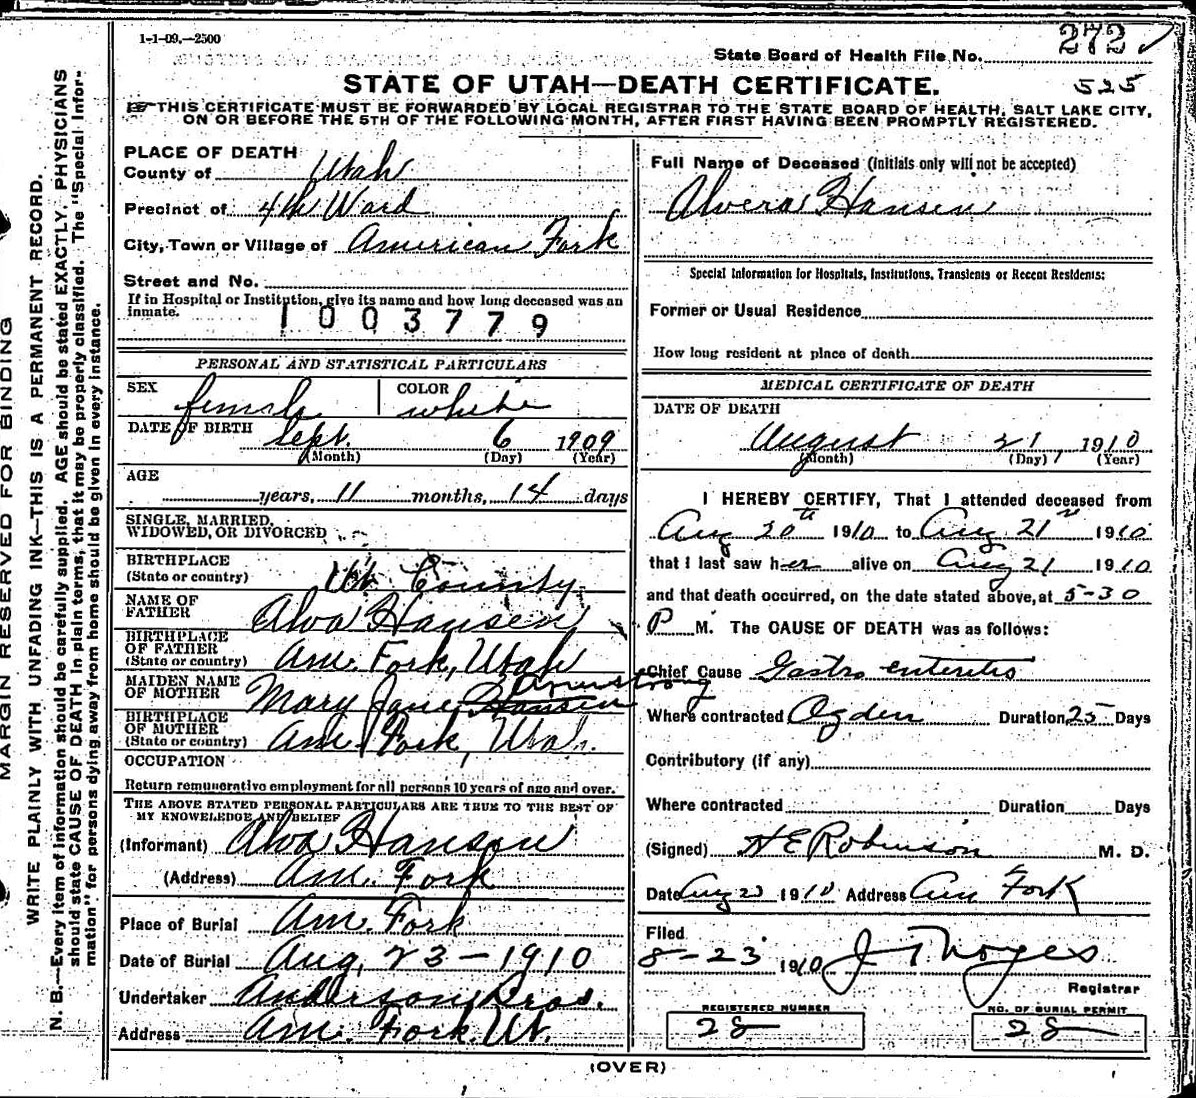 1-1-09.—2500
State Board of Health File No. 272
525
STATE OF UTAH—DEATH CERTIFICATE.
THIS CERTIFICATE MUST BE FORWARDED BY LOCAL REGISTRAR TO THE STATE BOARD OF HEALTH, SALT LAKE CITY,
ON OR BEFORE THE 5TH OF THE FOLLOWING MONTH, AFTER FIRST HAVING BEEN PROMPTLY REGISTERED.
MARGIN RESERVED FOR BINDING
WRITE PLAINLY WITH UNFADING INK—THIS IS A PERMANENT RECORD.
N. B.—Every item of information should be carefully supplied. AGE should be stated EXACTLY. PHYSICIANS
should state CAUSE OF DEATH in plain terms, that it may be properly classified. The "Special Infor-
mation" for persons dying away from home should be given in every instance.
PLACE OF DEATH
County of Utah
Precinct of 4th Ward
City, Town or Village of American Fork
Street and No.
If in Hospital or Institution, give its name and how long deceased was an
inmate.
1003779
PERSONAL AND STATISTICAL PARTICULARS
SEX female COLOR white
DATE OF BIRTH Sept. 6 1909
(Month) (Day) (Year)
AGE
years, 11 months, 14 days
SINGLE, MARRIED,
WIDOWED, OR DIVORCED
BIRTHPLACE
(State or country) Ut County
NAME OF
FATHER Alva Hansen
BIRTHPLACE
OF FATHER
(State or country) Am. Fork, Utah
MAIDEN NAME
OF MOTHER Mary Jane Hansen Armstrong
BIRTHPLACE
OF MOTHER
(State or country) Am. Fork, Utah.
OCCUPATION
Return remunerative employment for all persons 10 years of age and over.
THE ABOVE STATED PERSONAL PARTICULARS ARE TRUE TO THE BEST OF
MY KNOWLEDGE AND BELIEF
(Informant) Alva Hansen
(Address) Am. Fork
Place of Burial Am. Fork
Date of Burial Aug. 23-1910
Undertaker Anderson Bros.
Address Am. Fork. Ut.
Full Name of Deceased (initials only will not be accepted)
Alvera Hansen
Special Information for Hospitals, Institutions, Transients or Recent Residents:
Former or Usual Residence
How long resident at place of death
MEDICAL CERTIFICATE OF DEATH
DATE OF DEATH
August 21, 1910
(Month) (Day) (Year)
I HEREBY CERTIFY, That I attended deceased from
Aug 20th 1910 to Aug 21st 1910
that I last saw her alive on Aug 21 1910
and that death occurred, on the date stated above, at 5-30
P M. The CAUSE OF DEATH was as follows:
Chief Cause Gastro enteritis
Where contracted Ogden Duration 25 Days
Contributory (if any)
Where contracted Duration Days
(Signed) H E Robinson M. D.
Date Aug 23 1910 Address Am Fork
Filed
8-23. 1910 J T Noyes
Registrar
REGISTERED NUMBER
28
NO. OF BURIAL PERMIT
28
(OVER)